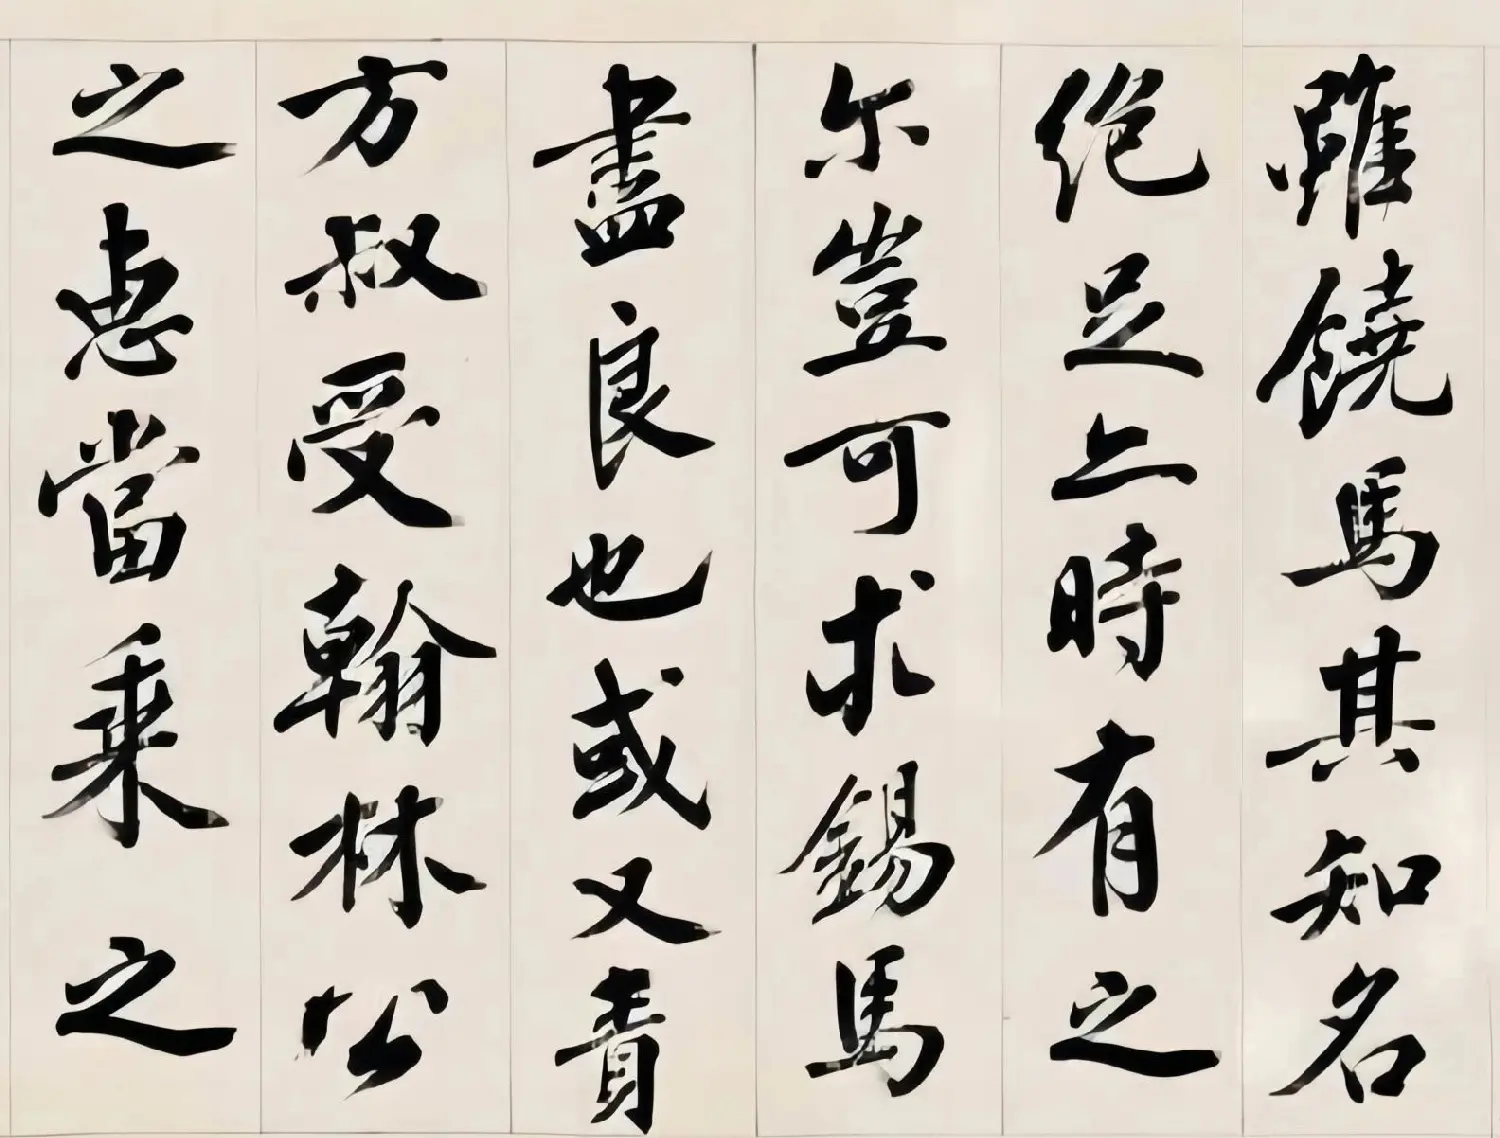 雖饒馬其知名
絶足上時有之
尓豈可求錫馬
盡良也或又責
方叔受翰林公
之惠當乘之